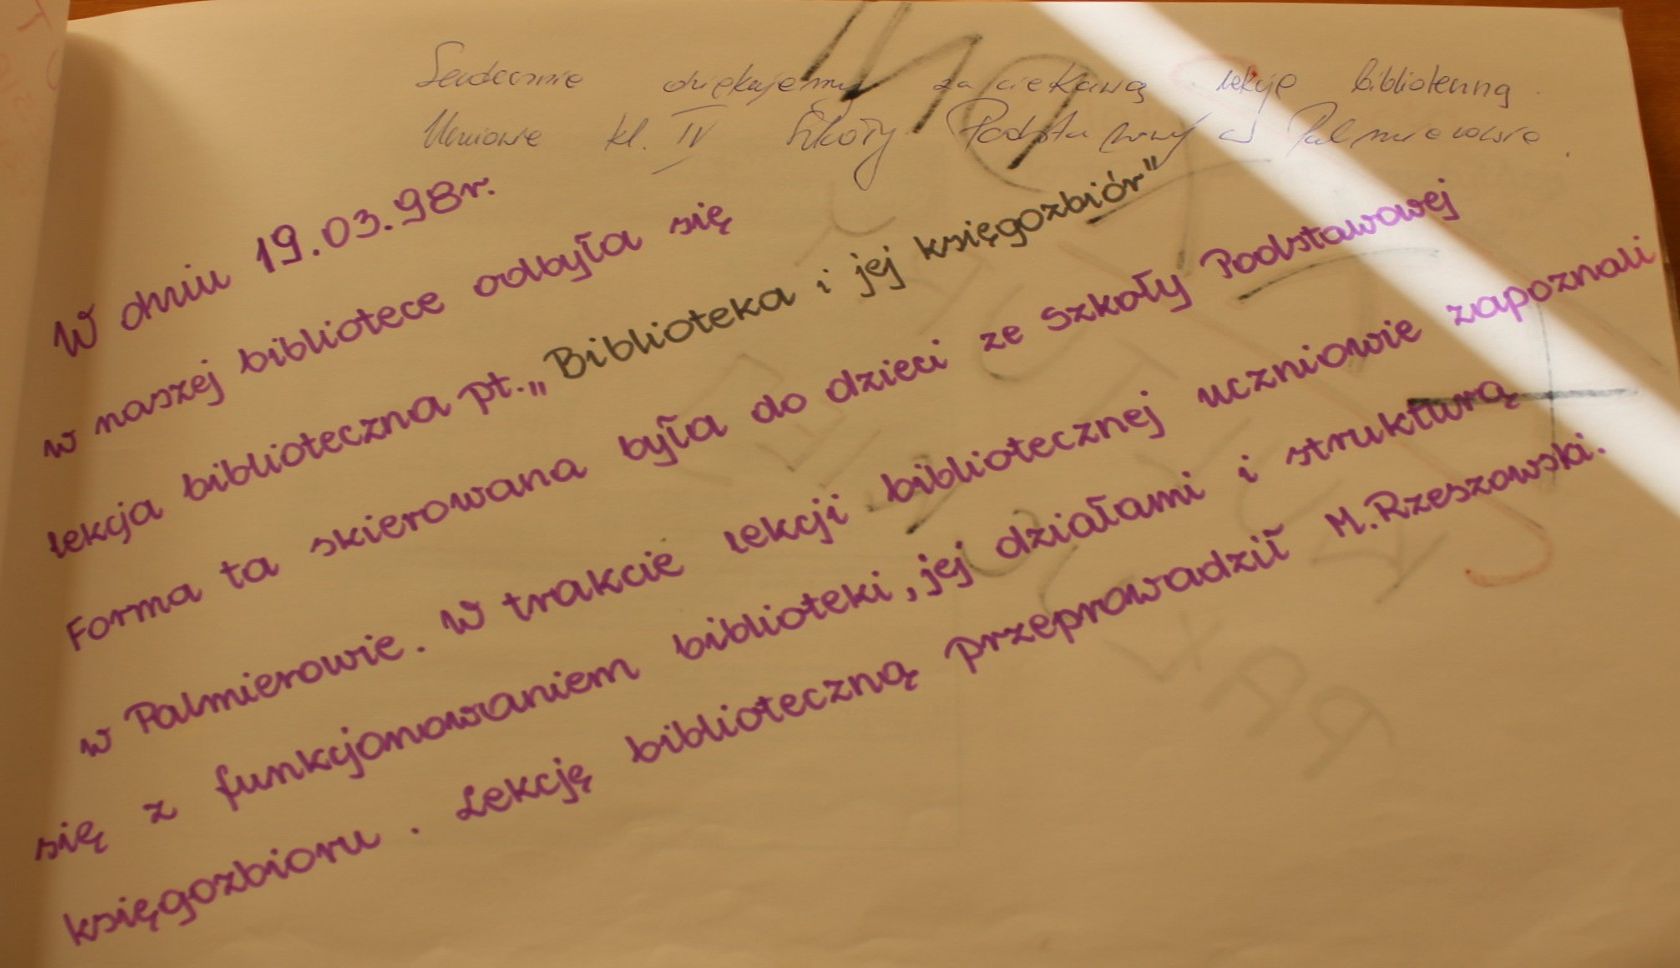 Serdecznie dziękujemy za ciekawą lekcję biblioteczną.
Uczniowie kl. IV Szkoły Podstawowej w Palmierowie.
W dniu 19.03.98r.
w naszej bibliotece odbyła się
lekcja biblioteczna pt. „Biblioteka i jej księgozbiór"
Forma ta skierowana była do dzieci ze Szkoły Podstawowej
w Palmierowie. W trakcie lekcji bibliotecznej uczniowie zapoznali
się z funkcjonowaniem biblioteki, jej działami i strukturą
księgozbioru. Lekcję biblioteczną przeprowadził M. Rzeszowski.